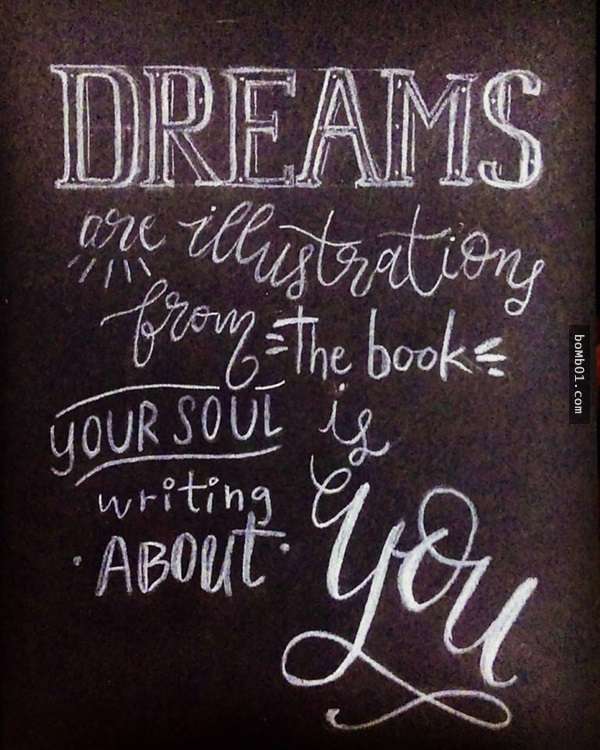 DREAMS
are illustrations
from the book
YOUR SOUL is
writing
ABOUT YOU
boMb01.com